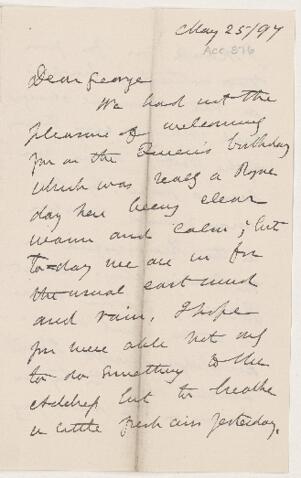 May 25/97
Acc. 876
Dear George
We had not the
pleasure of welcoming
you on the Queen's birthday
which was really a Royal
day here being clear
warm and calm; but
to=day we are in for
the usual east wind
and rain. I hope
you were able not only
to do something to the
address but to breathe
a little fresh air yesterday.